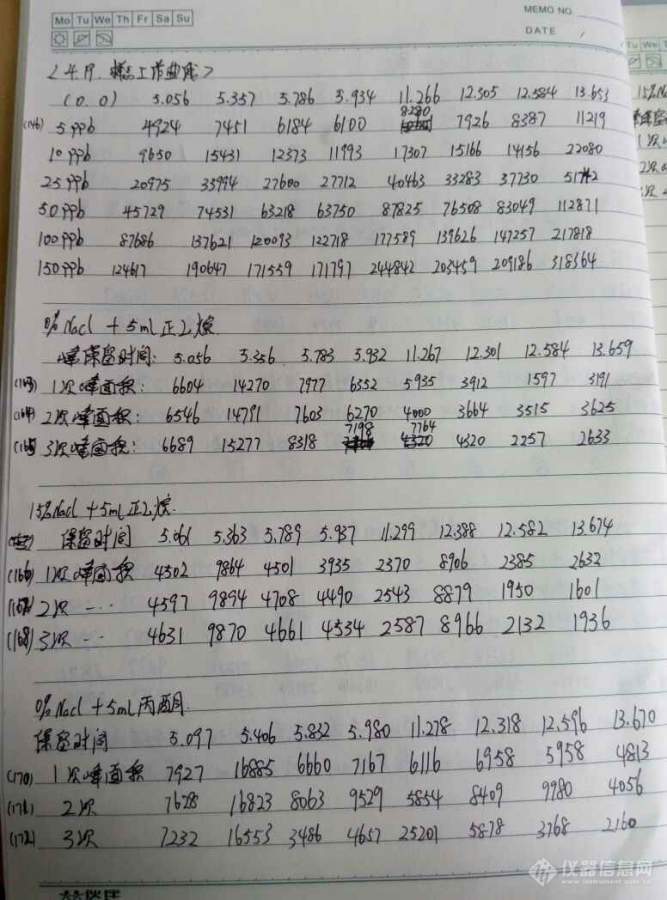 Mo Tu We Th Fr Sa Su
MEMO NO
DATE /
Tu We
<4.17. 工作曲线>
(0.0) 5.056 5.357 5.786 5.934 11.266 12.305 12.584 13.653
(146) 5ppb 4924 7451 6184 6100 8280 7926 8387 11219
10ppb 9650 15431 12373 11993 17307 15166 14156 22080
25ppb 20975 33994 27600 27712 40463 33283 37730
50ppb 45729 74531 63218 63750 87825 76508 83049 112871
100ppb 87686 137621 120093 122718 177589 139626 147257 217818
150ppb 124617 190647 171559 171797 244842 203459 209186 318364
0% Nacl + 5ml 正己烷
峰保留时间: 5.056 5.356 5.783 5.932 11.267 12.301 12.584 13.659
(163) 1次峰面积: 6604 14270 7977 6352 5935 3912 1597 3191
(164) 2次峰面积: 6546 14791 7603 6270 4000 3664 3515 3625
(165) 3次峰面积: 6689 15277 8318 7198 7764 4320 2257 2633
15% Nacl + 5ml 正己烷
保留时间 5.061 5.363 5.789 5.937 11.299 12.388 12.582 13.674
(166) 1次峰面积 4302 9864 4501 3935 2370 8906 2385 2632
(167) 2次 -- 4597 9894 4708 4490 2543 8879 1950 1601
(168) 3次 -- 4631 9870 4661 4534 2587 8966 2132 1936
0% Nacl + 5ml 丙酮
保留时间 5.097 5.406 5.832 5.980 11.278 12.318 12.596 13.670
(170) 1次峰面积 7927 16885 6660 7167 6116 6958 5958 4813
(171) 2次 7628 16823 8063 9529 5854 8409 9980 4056
(172) 3次 7232 16553 3486 4657 25201 5878 3768 2160
仪器信息网
www.instrument.com.cn